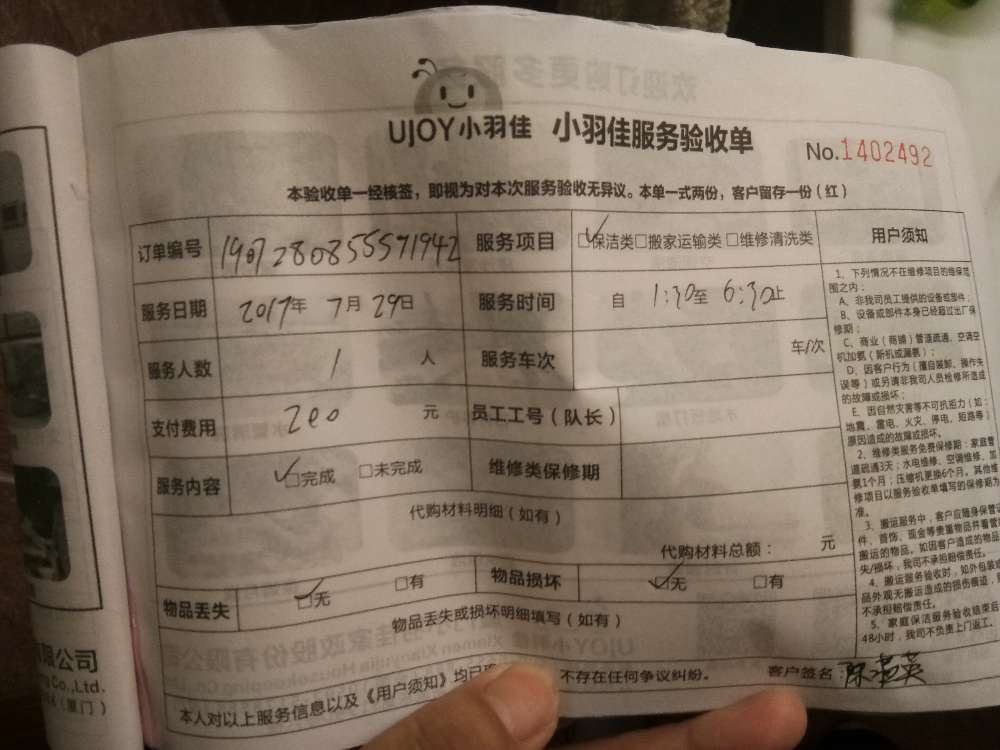 UJOY小羽佳 小羽佳服务验收单
No.1402492
本验收单一经核签，即视为对本次服务验收无异议。本单一式两份，客户留存一份（红）
订单编号 1907280855571942 服务项目 ☑保洁类□搬家运输类□维修清洗类 用户须知
服务日期 2019年 7月 29日 服务时间 自 1:30至 6:30止
服务人数 1 人 服务车次 车/次
支付费用 200 元 员工工号（队长）
服务内容 ☑完成 □未完成 维修类保修期
代购材料明细（如有）
代购材料总额： 元
物品丢失 ☑无 □有 物品损坏 ☑无 □有
物品丢失或损坏明细填写（如有）
本人对以上服务信息以及《用户须知》均已 不存在任何争议纠纷。 客户签名：
1、下列情况不在维修项目的维保范
围之内：
A、非我司员工提供的设备或部件；
B、设备或部件本身已经超过出厂保
修期；
C、商业（商铺）管道疏通、空调空
机加氨（新机或漏氨）；
D、因客户行为（擅自装卸、操作失
误等）或另请非我司人员检修所造成
的故障或损坏；
E、因自然灾害等不可抗拒力（如：
地震、雷电、火灾、停电、短路等）
原因造成的故障或损坏。
2、维修类服务免费保修期：家庭管
道疏通3天；水电维修、空调维修、加
氨1个月；压缩机更换6个月。其他维
修项目以服务验收单填写的保修期为
准。
3、搬运服务中，客户应随身保管证
件、首饰、现金等贵重物品并看管
搬运的物品。如因客户造成的物品
失/损坏，我司不承担赔偿责任。
4、搬运服务验收时，如外包装或
品外观无搬运造成的损伤痕迹，
不承担赔偿责任。
5、家庭保洁服务验收结束后
48小时，我司不负责上门返工。
有限公司
ng Co.,Ltd.
（厦门）